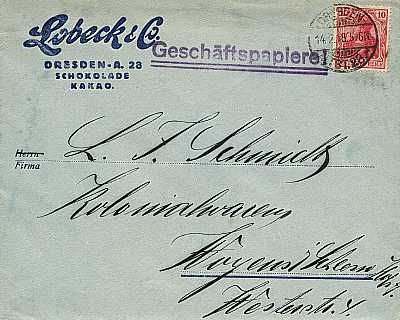 Lobeck & Co.
DRESDEN-A. 28
SCHOKOLADE
KAKAO.
Geschäftspapiere!
DRESDEN
10
Herrn
Firma
L. F. Schmidt
Kolonialwaren
Woyens
Westerstr. 4